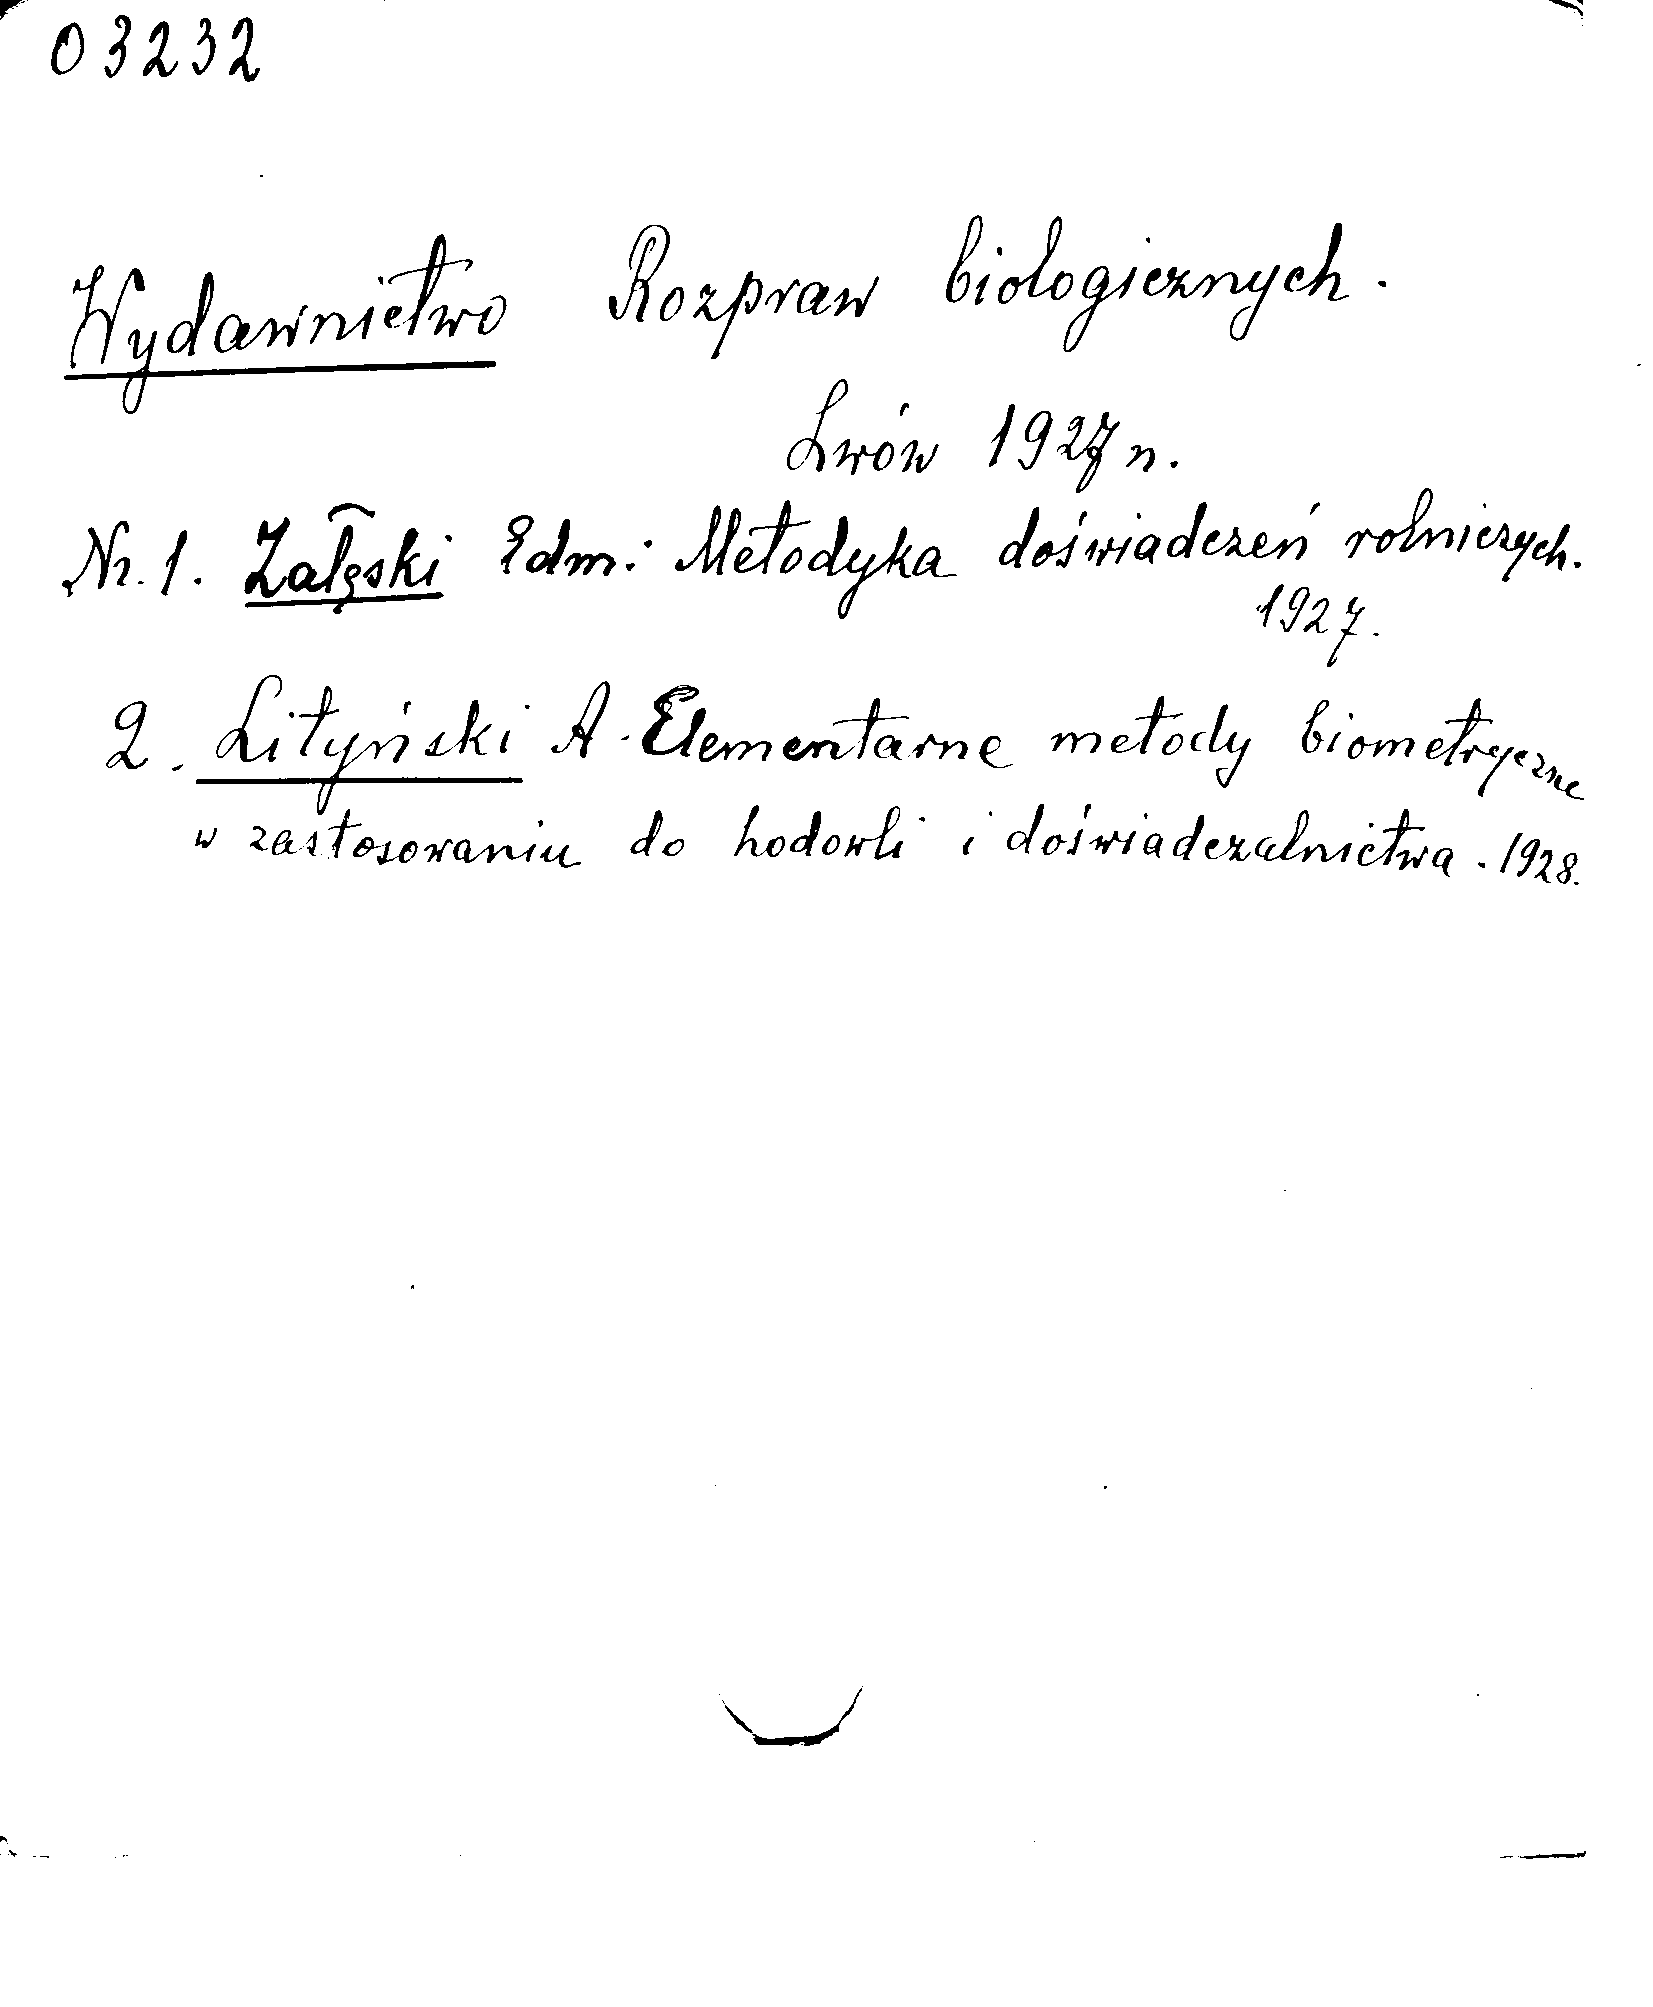 03232
Wydawnictwo Rozpraw biologicznych.
Lwów 1927 n.
Nr. 1. Załęski Edm.: Metodyka doświadczeń rolniczych.
1927.
2. Lityński A. Elementarne metody biometryczne
w zastosowaniu do hodowli i doświadczalnictwa. 1928.